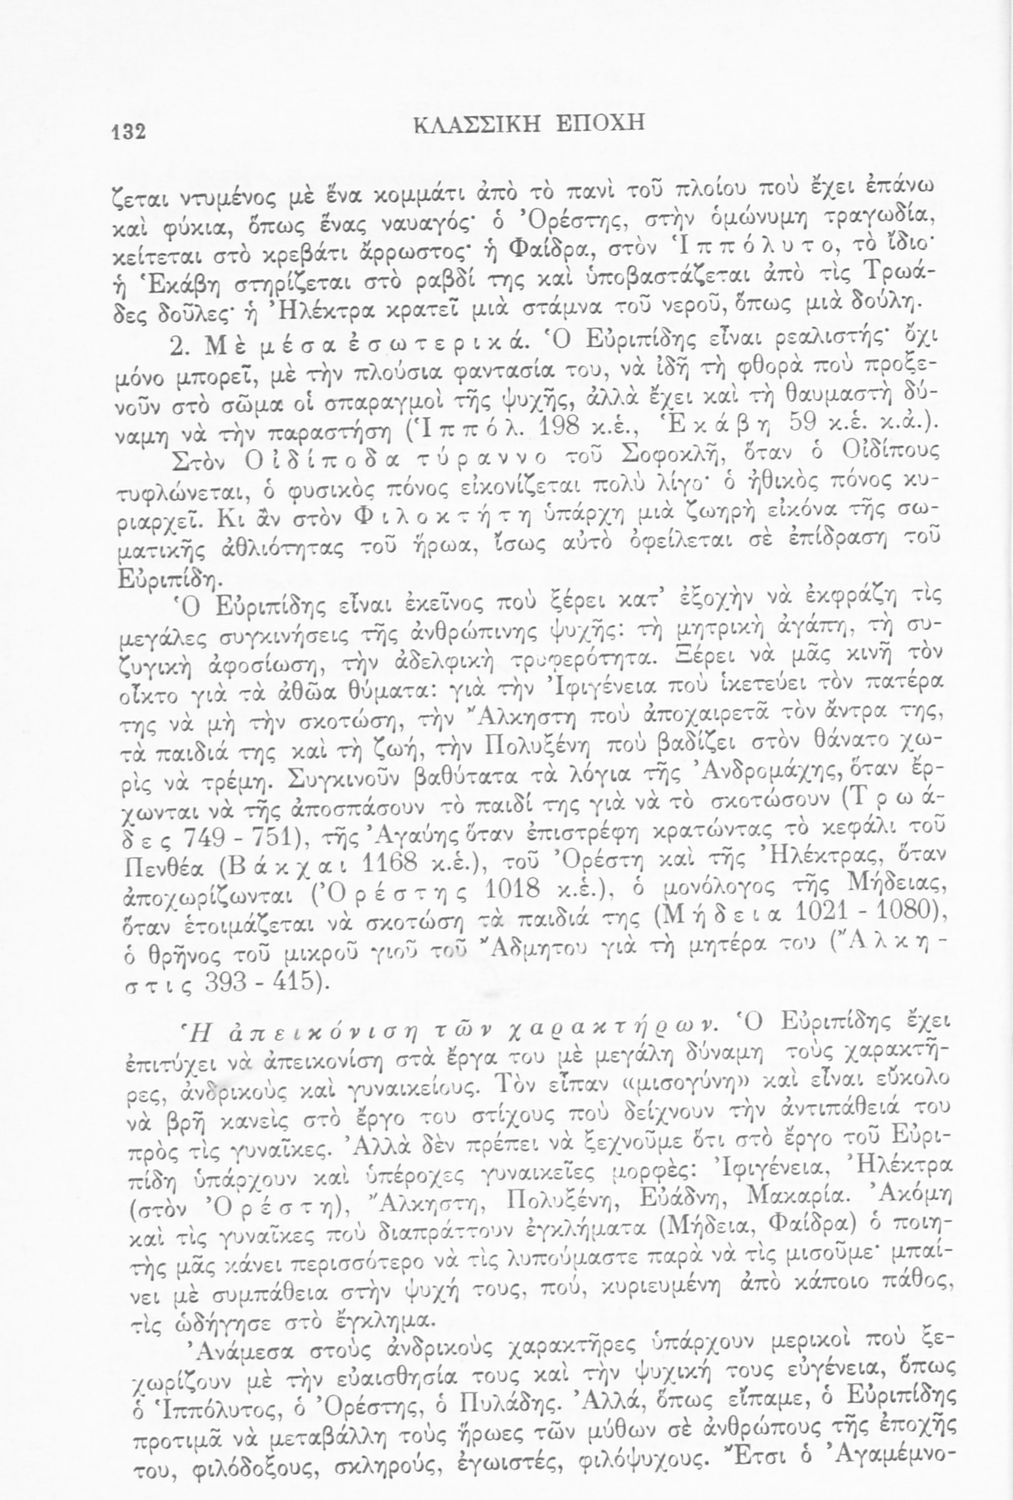 132
ΚΛΑΣΣΙΚΗ ΕΠΟΧΗ
ζεται ντυμένος μὲ ἕνα κομμάτι ἀπὸ τὸ πανὶ τοῦ πλοίου ποὺ ἔχει ἐπάνω
καὶ φύκια, ὅπως ἕνας ναυαγός· ὁ Ὀρέστης, στὴν ὁμώνυμη τραγωδία,
κείτεται στὸ κρεβάτι ἄρρωστος· ἡ Φαίδρα, στὸν Ἱππόλυτο, τὸ ἴδιο·
ἡ Ἑκάβη στηρίζεται στὸ ραβδί της καὶ ὑποβαστάζεται ἀπὸ τὶς Τρωά-
δες δοῦλες· ἡ Ἠλέκτρα κρατεῖ μιὰ στάμνα τοῦ νεροῦ, ὅπως μιὰ δούλη.
2. Μὲ μέσα ἐσωτερικά. Ὁ Εὐριπίδης εἶναι ρεαλιστής· ὄχι
μόνο μπορεῖ, μὲ τὴν πλούσια φαντασία του, νὰ ἰδῆ τὴ φθορὰ ποὺ προξε-
νοῦν στὸ σῶμα οἱ σπαραγμοὶ τῆς ψυχῆς, ἀλλὰ ἔχει καὶ τὴ θαυμαστὴ δύ-
ναμη νὰ τὴν παραστήση (Ἱππόλ. 198 κ.ἑ., Ἑκάβη 59 κ.ἑ. κ.ἀ.).
Στὸν Οἰδίποδα τύραννο τοῦ Σοφοκλῆ, ὅταν ὁ Οἰδίπους
τυφλώνεται, ὁ φυσικὸς πόνος εἰκονίζεται πολὺ λίγο· ὁ ἠθικὸς πόνος κυ-
ριαρχεῖ. Κι ἂν στὸν Φιλοκτήτη ὑπάρχη μιὰ ζωηρὴ εἰκόνα τῆς σω-
ματικῆς ἀθλιότητας τοῦ ἥρωα, ἴσως αὐτὸ ὀφείλεται σὲ ἐπίδραση τοῦ
Εὐριπίδη.
Ὁ Εὐριπίδης εἶναι ἐκεῖνος ποὺ ξέρει κατ’ ἐξοχὴν νὰ ἐκφράζη τὶς
μεγάλες συγκινήσεις τῆς ἀνθρώπινης ψυχῆς: τὴ μητρικὴ ἀγάπη, τὴ συ-
ζυγικὴ ἀφοσίωση, τὴν ἀδελφικὴ τρυφερότητα. Ξέρει νὰ μᾶς κινῆ τὸν
οἶκτο γιὰ τὰ ἀθῶα θύματα: γιὰ τὴν Ἰφιγένεια ποὺ ἱκετεύει τὸν πατέρα
της νὰ μὴ τὴν σκοτώση, τὴν Ἄλκηστη ποὺ ἀποχαιρετᾶ τὸν ἄντρα της,
τὰ παιδιά της καὶ τὴ ζωή, τὴν Πολυξένη ποὺ βαδίζει στὸν θάνατο χω-
ρὶς νὰ τρέμη. Συγκινοῦν βαθύτατα τὰ λόγια τῆς Ἀνδρομάχης, ὅταν ἔρ-
χωνται νὰ τῆς ἀποσπάσουν τὸ παιδί της γιὰ νὰ τὸ σκοτώσουν (Τρωά-
δες 749 - 751), τῆς Ἀγαύης ὅταν ἐπιστρέφη κρατώντας τὸ κεφάλι τοῦ
Πενθέα (Βάκχαι 1168 κ.ἑ.), τοῦ Ὀρέστη καὶ τῆς Ἠλέκτρας, ὅταν
ἀποχωρίζωνται (Ὀρέστης 1018 κ.ἑ.), ὁ μονόλογος τῆς Μήδειας,
ὅταν ἑτοιμάζεται νὰ σκοτώση τὰ παιδιά της (Μήδεια 1021 - 1080),
ὁ θρῆνος τοῦ μικροῦ γιοῦ τοῦ Ἄδμητου γιὰ τὴ μητέρα του (Ἄλκη-
στις 393 - 415).
Ἡ ἀπεικόνιση τῶν χαρακτήρων. Ὁ Εὐριπίδης ἔχει
ἐπιτύχει νὰ ἀπεικονίση στὰ ἔργα του μὲ μεγάλη δύναμη τοὺς χαρακτῆ-
ρες, ἀνδρικοὺς καὶ γυναικείους. Τὸν εἶπαν «μισογύνη» καὶ εἶναι εὔκολο
νὰ βρῆ κανεὶς στὸ ἔργο του στίχους ποὺ δείχνουν τὴν ἀντιπάθειά του
πρὸς τὶς γυναῖκες. Ἀλλὰ δὲν πρέπει νὰ ξεχνοῦμε ὅτι στὸ ἔργο τοῦ Εὐρι-
πίδη ὑπάρχουν καὶ ὑπέροχες γυναικεῖες μορφές: Ἰφιγένεια, Ἠλέκτρα
(στὸν Ὀρέστη), Ἄλκηστη, Πολυξένη, Εὐάδνη, Μακαρία. Ἀκόμη
καὶ τὶς γυναῖκες ποὺ διαπράττουν ἐγκλήματα (Μήδεια, Φαίδρα) ὁ ποιη-
τὴς μᾶς κάνει περισσότερο νὰ τὶς λυπούμαστε παρὰ νὰ τὶς μισοῦμε· μπαί-
νει μὲ συμπάθεια στὴν ψυχή τους, πού, κυριευμένη ἀπὸ κάποιο πάθος,
τὶς ὡδήγησε στὸ ἔγκλημα.
Ἀνάμεσα στοὺς ἀνδρικοὺς χαρακτῆρες ὑπάρχουν μερικοὶ ποὺ ξε-
χωρίζουν μὲ τὴν εὐαισθησία τους καὶ τὴν ψυχική τους εὐγένεια, ὅπως
ὁ Ἱππόλυτος, ὁ Ὀρέστης, ὁ Πυλάδης. Ἀλλά, ὅπως εἴπαμε, ὁ Εὐριπίδης
προτιμᾶ νὰ μεταβάλλη τοὺς ἥρωες τῶν μύθων σὲ ἀνθρώπους τῆς ἐποχῆς
του, φιλόδοξους, σκληρούς, ἐγωιστές, φιλόψυχους. Ἔτσι ὁ Ἀγαμέμνο-